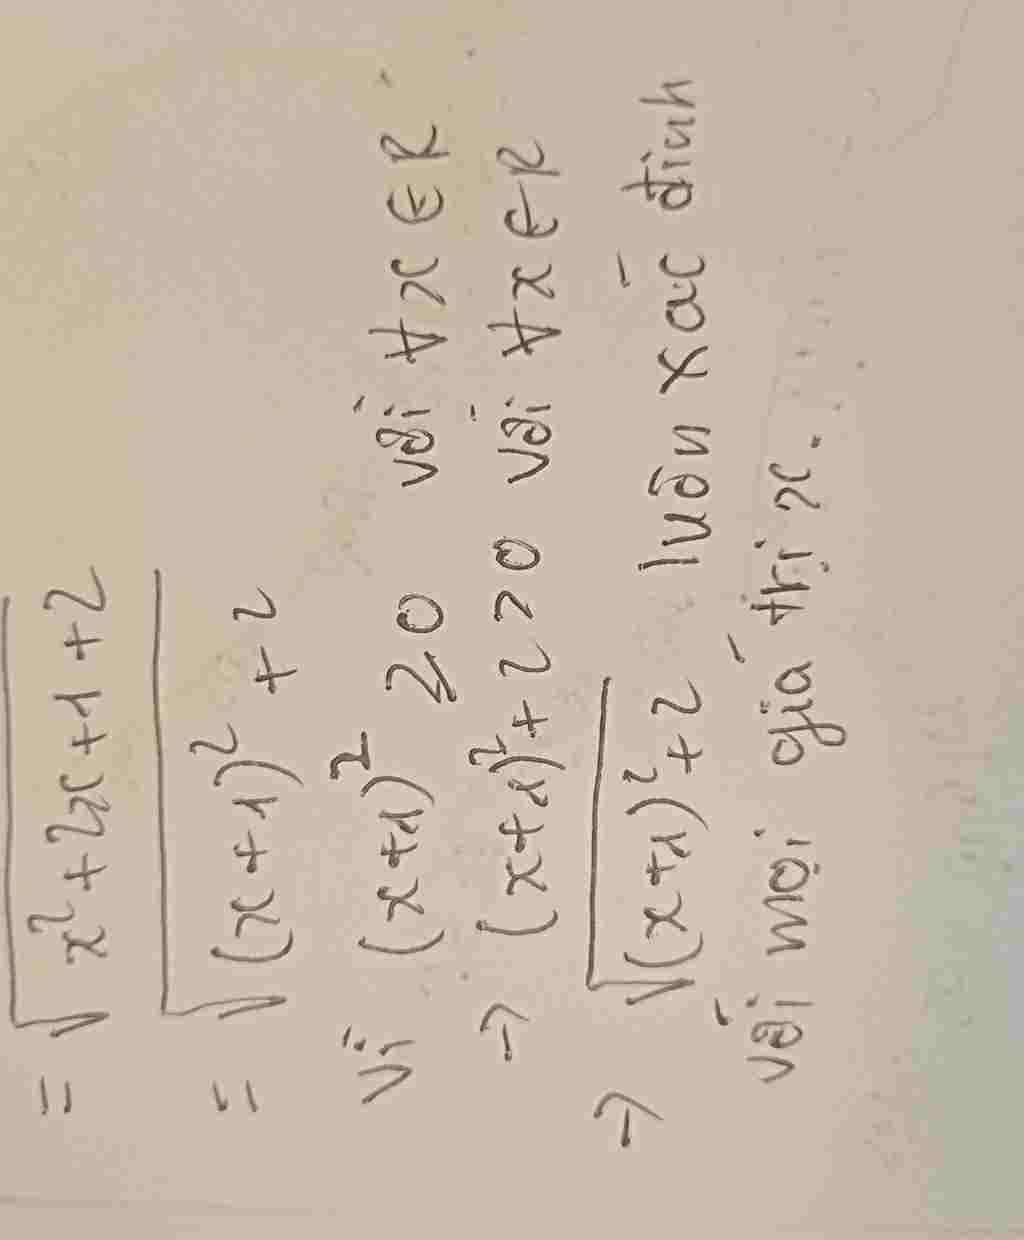 = √x²+2x+1+2
= √(x+1)²+2
Vì (x+1)² ≥0 với ∀x∈R
→ (x+1)²+2>0 với ∀x∈R
→ √(x+1)²+2 luôn xác định
với mọi giá trị x.